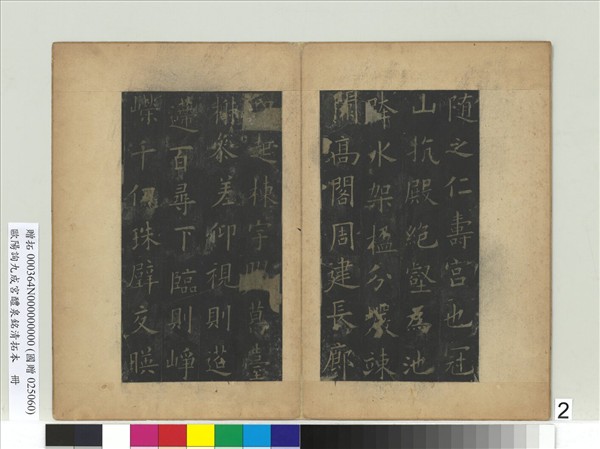 随之仁壽宮也冠
山抗殿絶壑為池
跨水架楹分巖竦
闕高閣周建長廊
四起棟宇膠葛臺
榭參差仰視則迢
遰百尋下臨則崢
嶸千仞珠璧交暎
贈拓 000364N000000000 (國贈 025060)
歐陽詢九成宮醴泉銘清拓本 冊
2